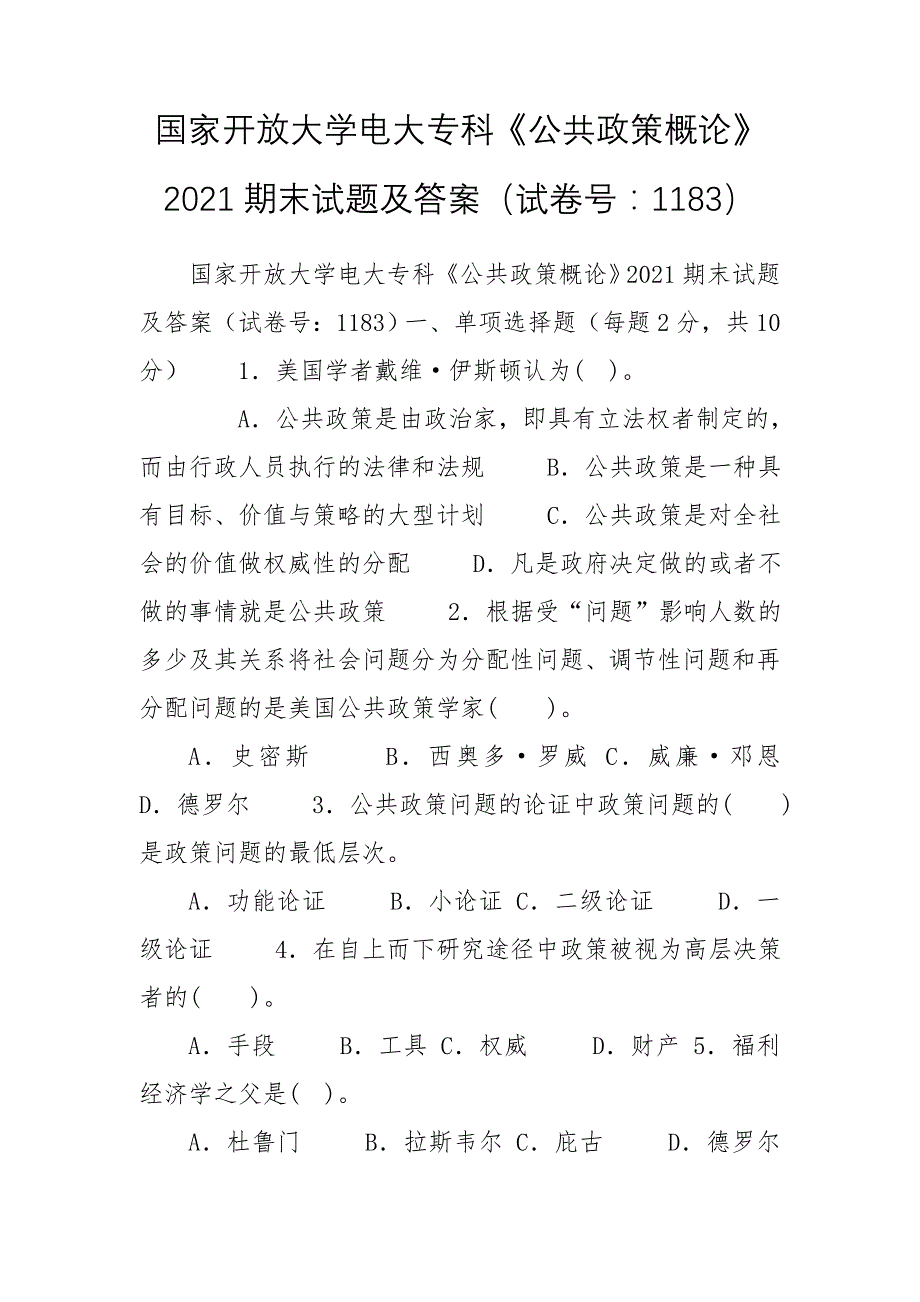 国家开放大学电大专科《公共政策概论》
2021 期末试题及答案（试卷号：1183）
国家开放大学电大专科《公共政策概论》2021 期末试题
及答案（试卷号：1183）一、单项选择题（每题 2 分，共 10
分） 1．美国学者戴维·伊斯顿认为( )。
A．公共政策是由政治家，即具有立法权者制定的，
而由行政人员执行的法律和法规 B．公共政策是一种具
有目标、价值与策略的大型计划 C．公共政策是对全社
会的价值做权威性的分配 D．凡是政府决定做的或者不
做的事情就是公共政策 2．根据受“问题”影响人数的
多少及其关系将社会问题分为分配性问题、调节性问题和再
分配问题的是美国公共政策学家( )。
A．史密斯 B．西奥多·罗威 C．威廉·邓恩
D．德罗尔 3．公共政策问题的论证中政策问题的( )
是政策问题的最低层次。
A．功能论证 B．小论证 C．二级论证 D．一
级论证 4．在自上而下研究途径中政策被视为高层决策
者的( )。
A．手段 B．工具 C．权威 D．财产 5．福利
经济学之父是( )。
A．杜鲁门 B．拉斯韦尔 C．庇古 D．德罗尔